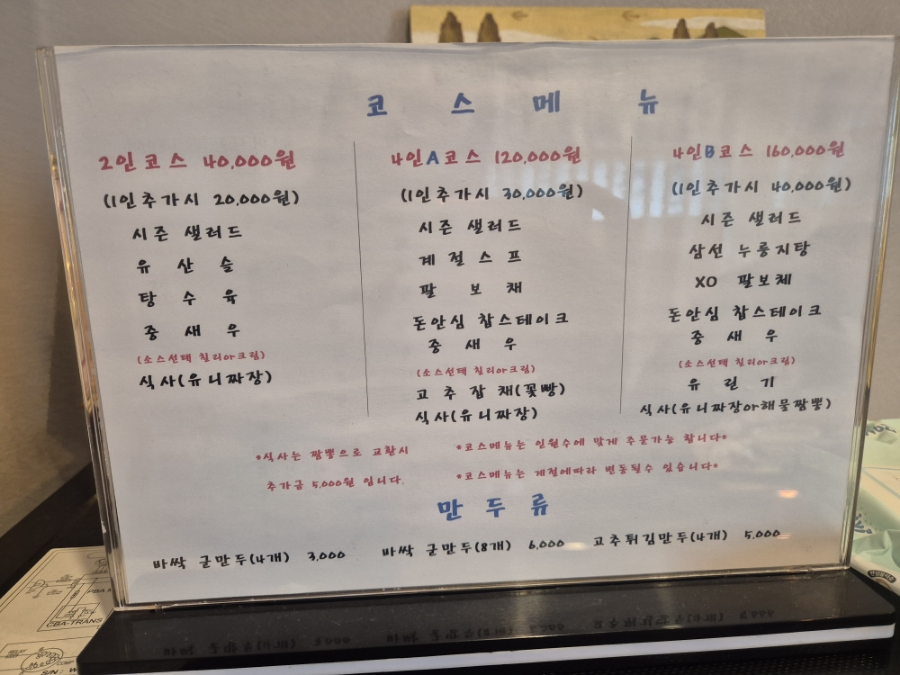 코 스 메 뉴
2인코스 40,000원
(1인추가시 20,000원)
시즌 샐러드
유 산 슬
탕 수 육
중 새 우
(소스선택 칠리or크림)
식사(유니짜장)
4인A코스 120,000원
(1인추가시 30,000원)
시즌 샐러드
계 절 스 프
팔 보 채
돈안심 찹스테이크
중 새 우
(소스선택 칠리or크림)
고추잡채(꽃빵)
식사(유니짜장)
4인B코스 160,000원
(1인추가시 40,000원)
시즌 샐러드
삼선 누룽지탕
XO 팔보체
돈안심 찹스테이크
중 새 우
(소스선택 칠리or크림)
유 린 기
식사(유니짜장or해물짬뽕)
*식사는 짬뽕으로 교환시
추가금 5,000원 입니다.
*코스메뉴는 인원수에 맞게 주문가능 합니다*
*코스메뉴는 계절에따라 변동될수 있습니다*
만 두 류
바싹 군만두(4개) 3,000
바싹 군만두(8개) 6,000
고추튀김만두(4개) 5,000
CBA-TRANS